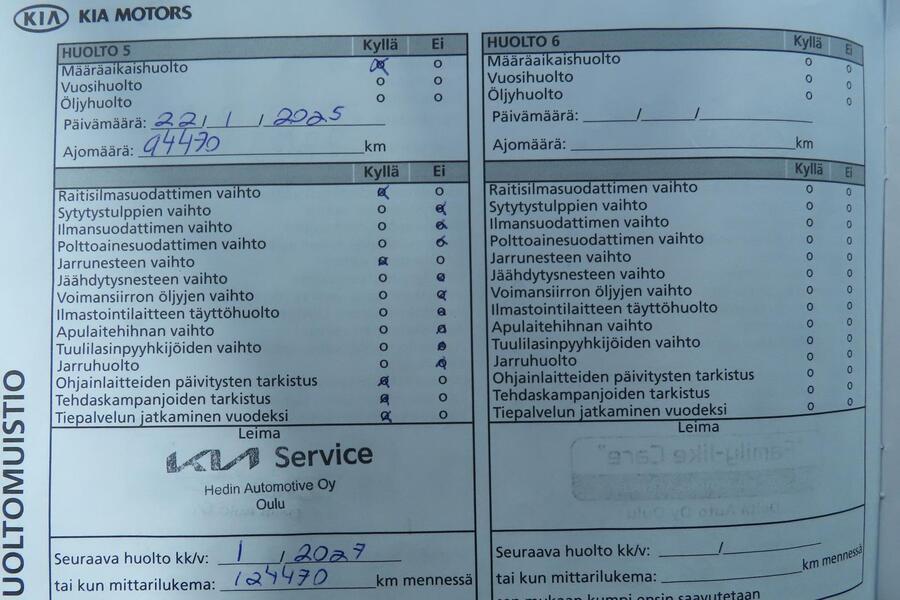 KIA KIA MOTORS
HUOLTO 5 Kyllä Ei
Määräaikaishuolto o o
Vuosihuolto o o
Öljyhuolto o o
Päivämäärä: 22 / 1 / 2025
Ajomäärä: 94470 km
Kyllä Ei
Raitisilmasuodattimen vaihto o o
Sytytystulppien vaihto o o
Ilmansuodattimen vaihto o o
Polttoainesuodattimen vaihto o o
Jarrunesteen vaihto o o
Jäähdytysnesteen vaihto o o
Voimansiirron öljyjen vaihto o o
Ilmastointilaitteen täyttöhuolto o o
Apulaitehihnan vaihto o o
Tuulilasinpyyhkijöiden vaihto o o
Jarruhuolto o o
Ohjainlaitteiden päivitysten tarkistus o o
Tehdaskampanjoiden tarkistus o o
Tiepalvelun jatkaminen vuodeksi o o
Leima
KIA Service
Hedin Automotive Oy
Oulu
Seuraava huolto kk/v: 1 / 2027
tai kun mittarilukema: 124470 km mennessä
HUOLTO 6 Kyllä Ei
Määräaikaishuolto o o
Vuosihuolto o o
Öljyhuolto o o
Päivämäärä: / /
Ajomäärä: km
Kyllä Ei
Raitisilmasuodattimen vaihto o o
Sytytystulppien vaihto o o
Ilmansuodattimen vaihto o o
Polttoainesuodattimen vaihto o o
Jarrunesteen vaihto o o
Jäähdytysnesteen vaihto o o
Voimansiirron öljyjen vaihto o o
Ilmastointilaitteen täyttöhuolto o o
Apulaitehihnan vaihto o o
Tuulilasinpyyhkijöiden vaihto o o
Jarruhuolto o o
Ohjainlaitteiden päivitysten tarkistus o o
Tehdaskampanjoiden tarkistus o o
Tiepalvelun jatkaminen vuodeksi o o
Leima
"Family-like Care"
Delta Auto Oy Oulu
Seuraava huolto kk/v: /
tai kun mittarilukema: km mennessä
kumpi ensin saavutetaan
UOLTOMUISTIO